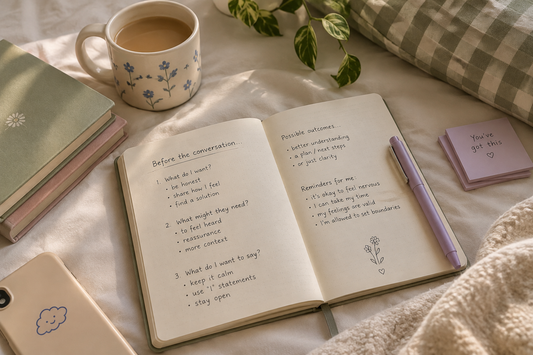 Before the conversation...
1. What do I want?
• be honest
• share how I feel
• find a solution
2. What might they need?
• to feel heard
• reassurance
• more context
3. What do I want to say?
• keep it calm
• use "I" statements
• stay open
Possible outcomes...
• better understanding
• a plan / next steps
• or just clarity
Reminders for me:
• it's okay to feel nervous
• I can take my time
• my feelings are valid
• I'm allowed to set boundaries
You've
got this